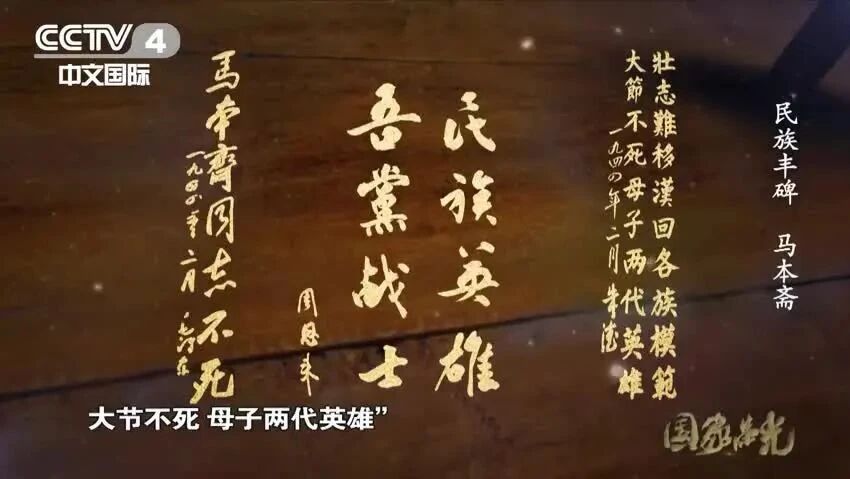 CCTV 4
中文国际
民族丰碑 马本斋
壯志難移漢回各族模範
大節不死母子两代英雄
一九四四年二月 朱德
民族英雄
吾黨战士
周恩来
馬本齋同志不死
一九四四年二月 毛泽东
大节不死 母子两代英雄”
国家荣光